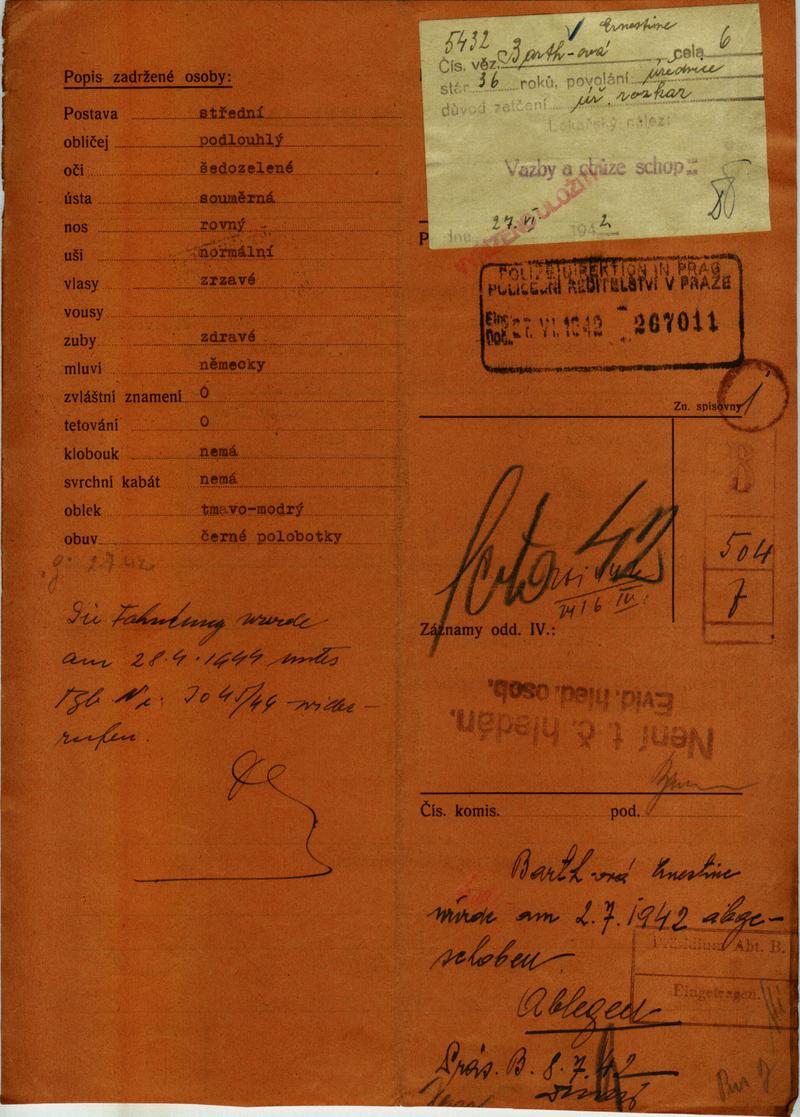 Popis zadržené osoby:
Postava střední
obličej podlouhlý
oči šedozelené
ústa souměrná
nos rovný
uši normální
vlasy zrzavé
vousy
zuby zdravé
mluví německy
zvláštní znamení 0
tetování 0
klobouk nemá
svrchní kabát nemá
oblek tmavo-modrý
obuv černé polobotky
2.7.42
Die Fahndung wurde
am 28.4.1944 unter
Tgb. Nr. 3045/44 wider-
rufen.
5432 Ernestine
Čís. věz. Barth-ová cela 6
stár 36 roků, povolání úřednice
důvod zatčení úř. rozkaz
Lékařský nález:
Vazby a chůze schop
dne 27. VI 1942
POLIZEIDIREKTION IN PRAG
POLICEJNÍ ŘEDITELSTVÍ V PRAZE
Eing.
Doš. 27. VI. 1942 - 267011
Zn. spisovny 1
42
504
7
Záznamy odd. IV.:
Není t. č. hledán.
Evid. hled. osob.
Čís. komis. pod.
Barth-ová Ernestine
wurde am 2.7.1942 abge-
schoben
Präsidium Abt. B.
Eingetragen.
Ablegen
Präs. B. 8.7.42